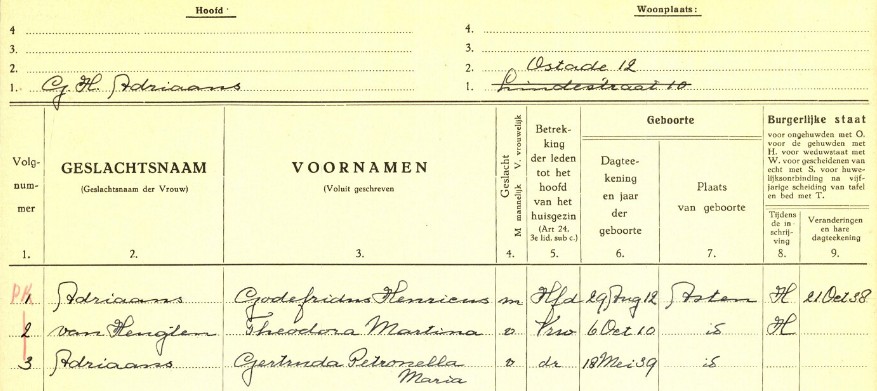 Hoofd Woonplaats:
4 4.
3. 3.
2. 2. Ostade 12
1. G. H. Adriaans 1. Lindestraat 10
Volg-
num-
mer
1.
GESLACHTSNAAM
(Geslachtsnaam der Vrouw)
2.
VOORNAMEN
(Voluit geschreven
3.
Geslacht
M mannelijk V. vrouwelijk
4.
Betrek-
king
der leden
tot het
hoofd
van het
huisgezin
(Art 24.
3e lid. sub c.)
5.
Geboorte
Dagtee-
kening
en jaar
der
geboorte
6.
Plaats
van geboorte
7.
Burgerlijke staat
voor ongehuwden met O.
voor de gehuwden met
H. voor weduwstaat met
W. voor gescheidenen van
echt met S. voor huwe-
lijksontbinding na vijf-
jarige scheiding van tafel
en bed met T.
Tijdens
de in
schrij-
ving
8.
Veranderingen
en hare
dagteekening
9.
PK 1 Adriaans Godefridus Henricus m Hfd 29 Aug 12 Asten H 21 Oct 38
2 van Hengten Theodora Martina v Vrw 6 Oct 10 id H
3 Adriaans Gertruda Petronella v dr 18 Mei 39 id
Maria